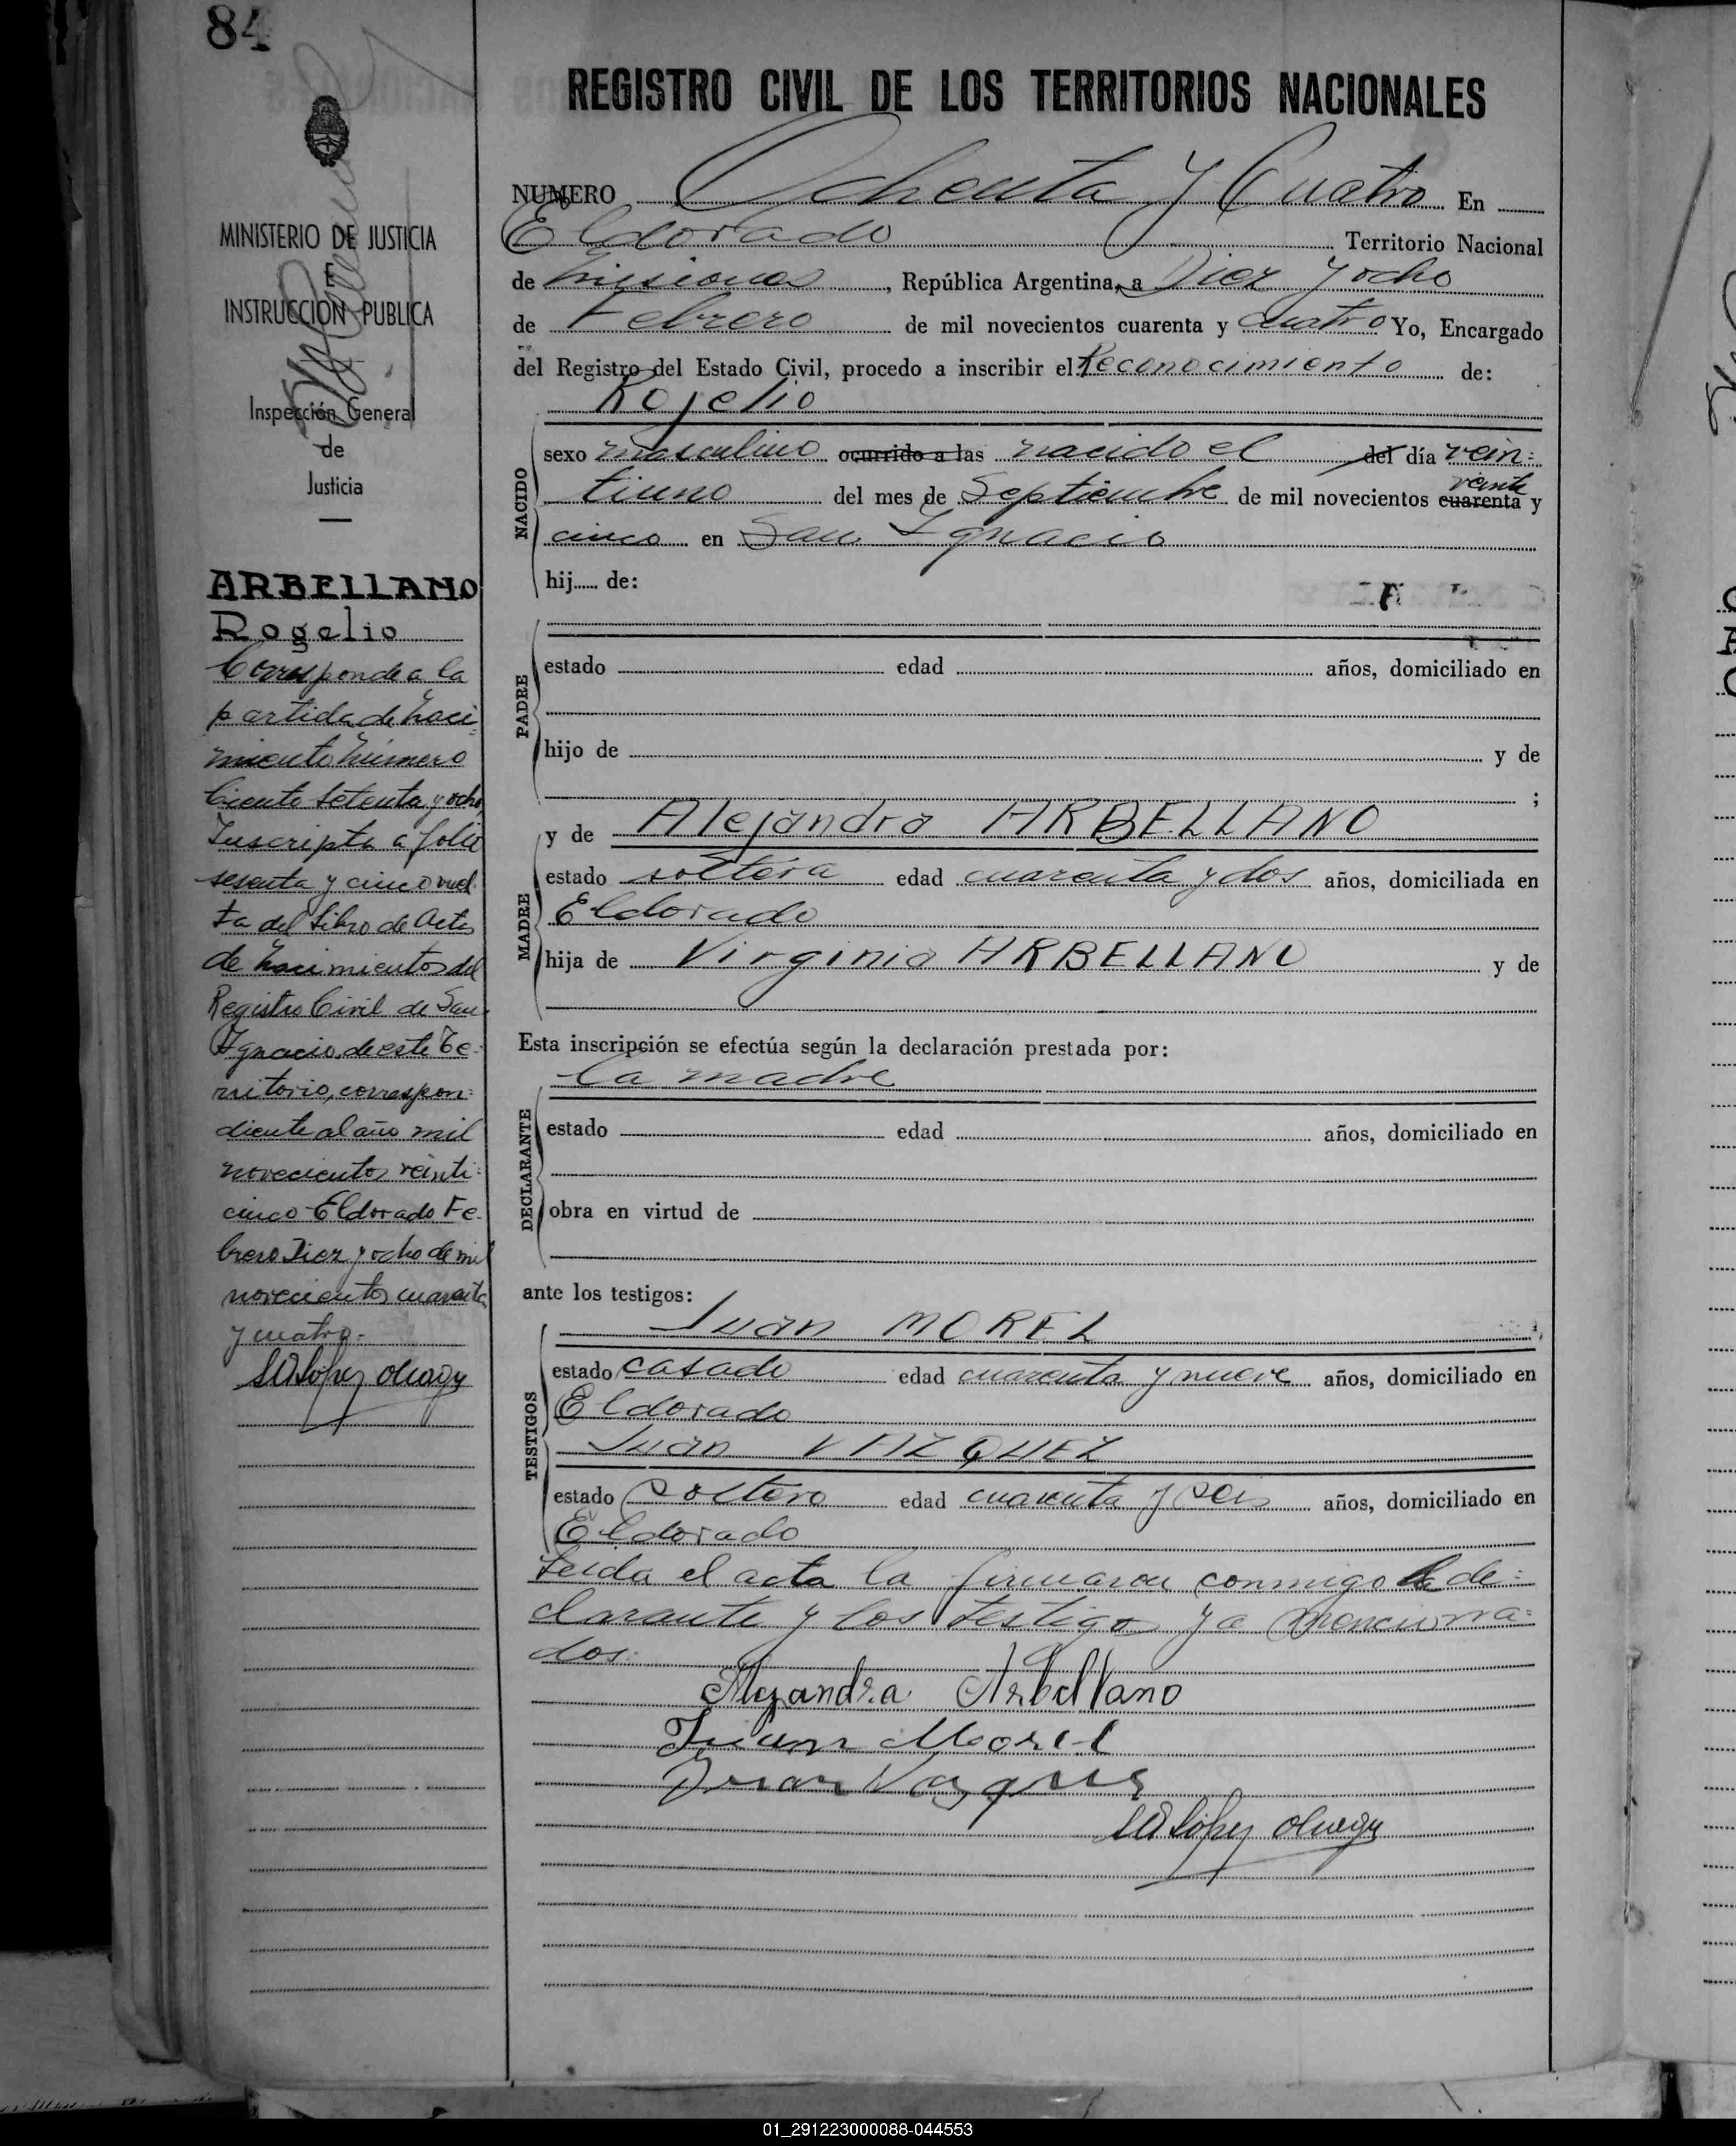 84
MINISTERIO DE JUSTICIA
E
INSTRUCCION PUBLICA
Inspección General
de
Justicia
ARBELLANO
Rogelio
Corresponde a la
partida de naci-
miento número
Ciento setenta y ocho
Inscripta a folio
sesenta y cinco vuel-
ta del Libro de Actas
de nacimientos del
Registro Civil de San
Ygnacio, de este Te-
rritorio, correspon-
diente al año mil
novecientos veinti-
cinco - Eldorado Fe-
brero Diez y ocho de mil
novecientos cuarenta
y cuatro.-
REGISTRO CIVIL DE LOS TERRITORIOS NACIONALES
NUMERO Ochenta y Cuatro En
Eldorado Territorio Nacional
de Misiones, República Argentina, a Diez y ocho
de Febrero de mil novecientos cuarenta y cuatro Yo, Encargado
del Registro del Estado Civil, procedo a inscribir el Reconocimiento de:
Rojelio
NACIDO
sexo masculino ocurrido a las nacido el del día vein=
tiuno del mes de Septiembre de mil novecientos cuarenta veinte y
cinco en San Ygnacio
hij..... de:
PADRE
estado edad años, domiciliado en
hijo de y de
;
y de Alejandra ARBELLANO
MADRE
estado soltera edad cuarenta y dos años, domiciliada en
Eldorado
hija de Virginia ARBELLANO y de
Esta inscripción se efectúa según la declaración prestada por:
la madre
DECLARANTE
estado edad años, domiciliado en
obra en virtud de
ante los testigos:
Juan MOREL
TESTIGOS
estado casado edad cuarenta y nueve años, domiciliado en
Eldorado
Juan VAZQUEZ
estado soltero edad cuarenta y seis años, domiciliado en
Eldorado
Leida el acta la firmaron conmigo la de=
clarante y los testigo ya menciona=
dos:
Alejandra Arbellano
Juan Morel
Juan Vazquez
01_291223000088-044553